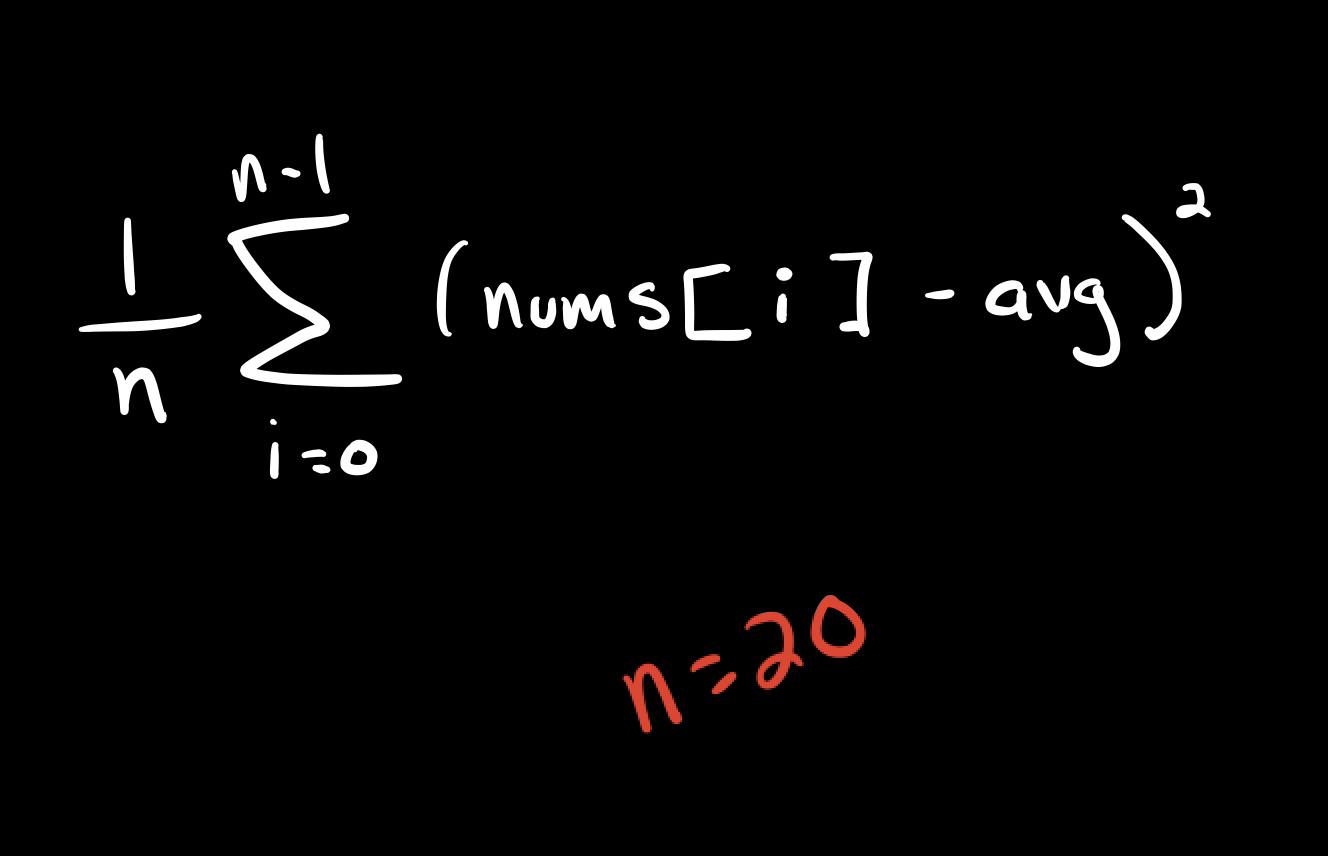 1/n ∑_{i=0}^{n-1} (nums[i] - avg)²
n=20